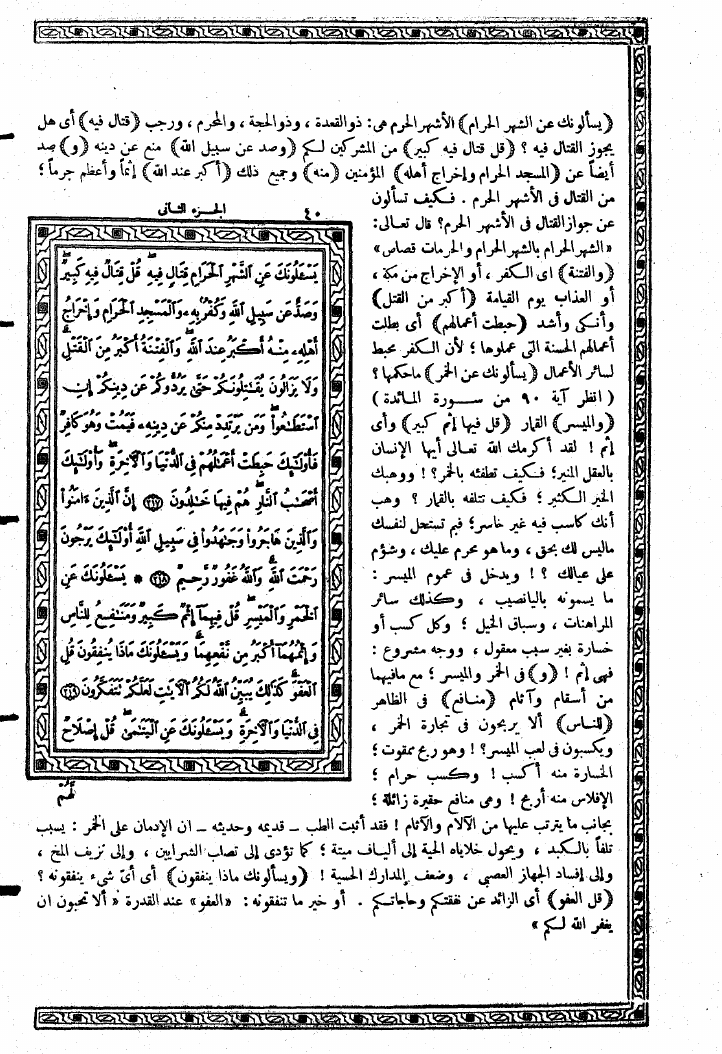 (يسألونك عن الشهر الحرام) الأشهر الحرم هى: ذوالقعدة ، وذوالحجة ، والمحرم ، ورجب (قتال فيه) أى هل
يجوز القتال فيه ؟ (قل قتال فيه كبير) من المشركين لكم (وصد عن سبيل الله) منع عن دينه (و) صد
أيضاً عن (المسجد الحرام وإخراج أهله) المؤمنين (منه) وجميع ذلك (أكبر عند الله) إثماً وأعظم جرماً ؛
من القتال فى الأشهر الحرم . فكيف تسألون
عن جواز القتال فى الأشهر الحرم؟ قال تعالى:
«الشهر الحرام بالشهر الحرام والحرمات قصاص»
(والفتنة) اى الكفر ، أو الإخراج من مكة ،
أو العذاب يوم القيامة (أكبر من القتل)
وأنكى وأشد (حبطت أعمالهم) أى بطلت
أعمالهم الحسنة التى عملوها ؛ لأن الكفر محبط
لسائر الأعمال (يسألونك عن الخمر) ماحكمها ؟
(انظر آية ٩٠ من ســـورة المائدة)
(والميسر) القمار (قل فيها إثم كبير) وأى
إثم ! لقد أكرمك الله تعالى أيها الإنسان
بالعقل المنير؛ فكيف تطفئه بالخمر؟ ! ووهبك
الخير الكثير ؛ فكيف تتلفه بالقمار ؟ وهب
أنك كاسب فيه غير خاسر؛ فبم تستحل لنفسك
ماليس لك بحق ، وما هو محرم عليك ، وشؤم
على عيالك ؟ ! ويدخل فى عموم الميسر :
ما يسمونه باليانصيب ، وكذلك سائر
المراهنات ، وسباق الخيل ؛ وكل كسب أو
خسارة بغير سبب معقول ، ووجه مشروع :
فهى إثم ! (و) فى الخمر والميسر ؛ مع مافيهما
من أسقام وآثام (منافع) فى الظاهر
(للناس) ألا يربحون فى تجارة الخمر ،
ويكسبون فى لعب الميسر؟ ! وهو ربح ممقوت ؛
الخسارة منه أكسب ! وكسب حرام ؛
الإفلاس منه أربح ! وهى منافع حقيرة زائلة ؛
بجانب ما يترتب عليها من الآلام والآثام ! فقد أثبت الطب – قديمه وحديثه – ان الإدمان على الخمر : يسبب
تلفاً بالكبد ، ويحول خلاياه الحية إلى ألياف ميتة ؛ كما تؤدى إلى تصلب الشرايين ، وإلى نزيف المخ ،
وإلى إفساد الجهاز العصبى ، وضعف المدارك الحسية ! (ويسألونك ماذا ينفقون) أى أىّ شىء ينفقونه ؟
(قل العفو) أى الزائد عن نفقتكم وحاجاتكم . أو خير ما تنفقونه : «العفو» عند القدرة «ألا تحبون ان
يغفر الله لكم»
٤٠ الجزء الثانى
يَسْـَٔلُونَكَ عَنِ ٱلشَّهْرِ ٱلْحَرَامِ قِتَالٍ فِيهِ ۖ قُلْ قِتَالٌ فِيهِ كَبِيرٌ ۖ
وَصَدٌّ عَن سَبِيلِ ٱللَّهِ وَكُفْرٌۢ بِهِۦ وَٱلْمَسْجِدِ ٱلْحَرَامِ وَإِخْرَاجُ
أَهْلِهِۦ مِنْهُ أَكْبَرُ عِندَ ٱللَّهِ ۚ وَٱلْفِتْنَةُ أَكْبَرُ مِنَ ٱلْقَتْلِ ۗ
وَلَا يَزَالُونَ يُقَـٰتِلُونَكُمْ حَتَّىٰ يَرُدُّوكُمْ عَن دِينِكُمْ إِنِ
ٱسْتَطَـٰعُوا۟ ۚ وَمَن يَرْتَدِدْ مِنكُمْ عَن دِينِهِۦ فَيَمُتْ وَهُوَ كَافِرٌ
فَأُو۟لَـٰٓئِكَ حَبِطَتْ أَعْمَـٰلُهُمْ فِى ٱلدُّنْيَا وَٱلْـَٔاخِرَةِ ۖ وَأُو۟لَـٰٓئِكَ
أَصْحَـٰبُ ٱلنَّارِ ۖ هُمْ فِيهَا خَـٰلِدُونَ ﴿٢١٧﴾ إِنَّ ٱلَّذِينَ ءَامَنُوا۟
وَٱلَّذِينَ هَاجَرُوا۟ وَجَـٰهَدُوا۟ فِى سَبِيلِ ٱللَّهِ أُو۟لَـٰٓئِكَ يَرْجُونَ
رَحْمَتَ ٱللَّهِ ۚ وَٱللَّهُ غَفُورٌ رَّحِيمٌ ﴿٢١٨﴾ * يَسْـَٔلُونَكَ عَنِ
ٱلْخَمْرِ وَٱلْمَيْسِرِ ۖ قُلْ فِيهِمَآ إِثْمٌ كَبِيرٌ وَمَنَـٰفِعُ لِلنَّاسِ
وَإِثْمُهُمَآ أَكْبَرُ مِن نَّفْعِهِمَا ۗ وَيَسْـَٔلُونَكَ مَاذَا يُنفِقُونَ قُلِ
ٱلْعَفْوَ ۗ كَذَٰلِكَ يُبَيِّنُ ٱللَّهُ لَكُمُ ٱلْـَٔايَـٰتِ لَعَلَّكُمْ تَتَفَكَّرُونَ ﴿٢١٩﴾
فِى ٱلدُّنْيَا وَٱلْـَٔاخِرَةِ ۗ وَيَسْـَٔلُونَكَ عَنِ ٱلْيَتَـٰمَىٰ ۖ قُلْ إِصْلَاحٌ
لَّهُمْ